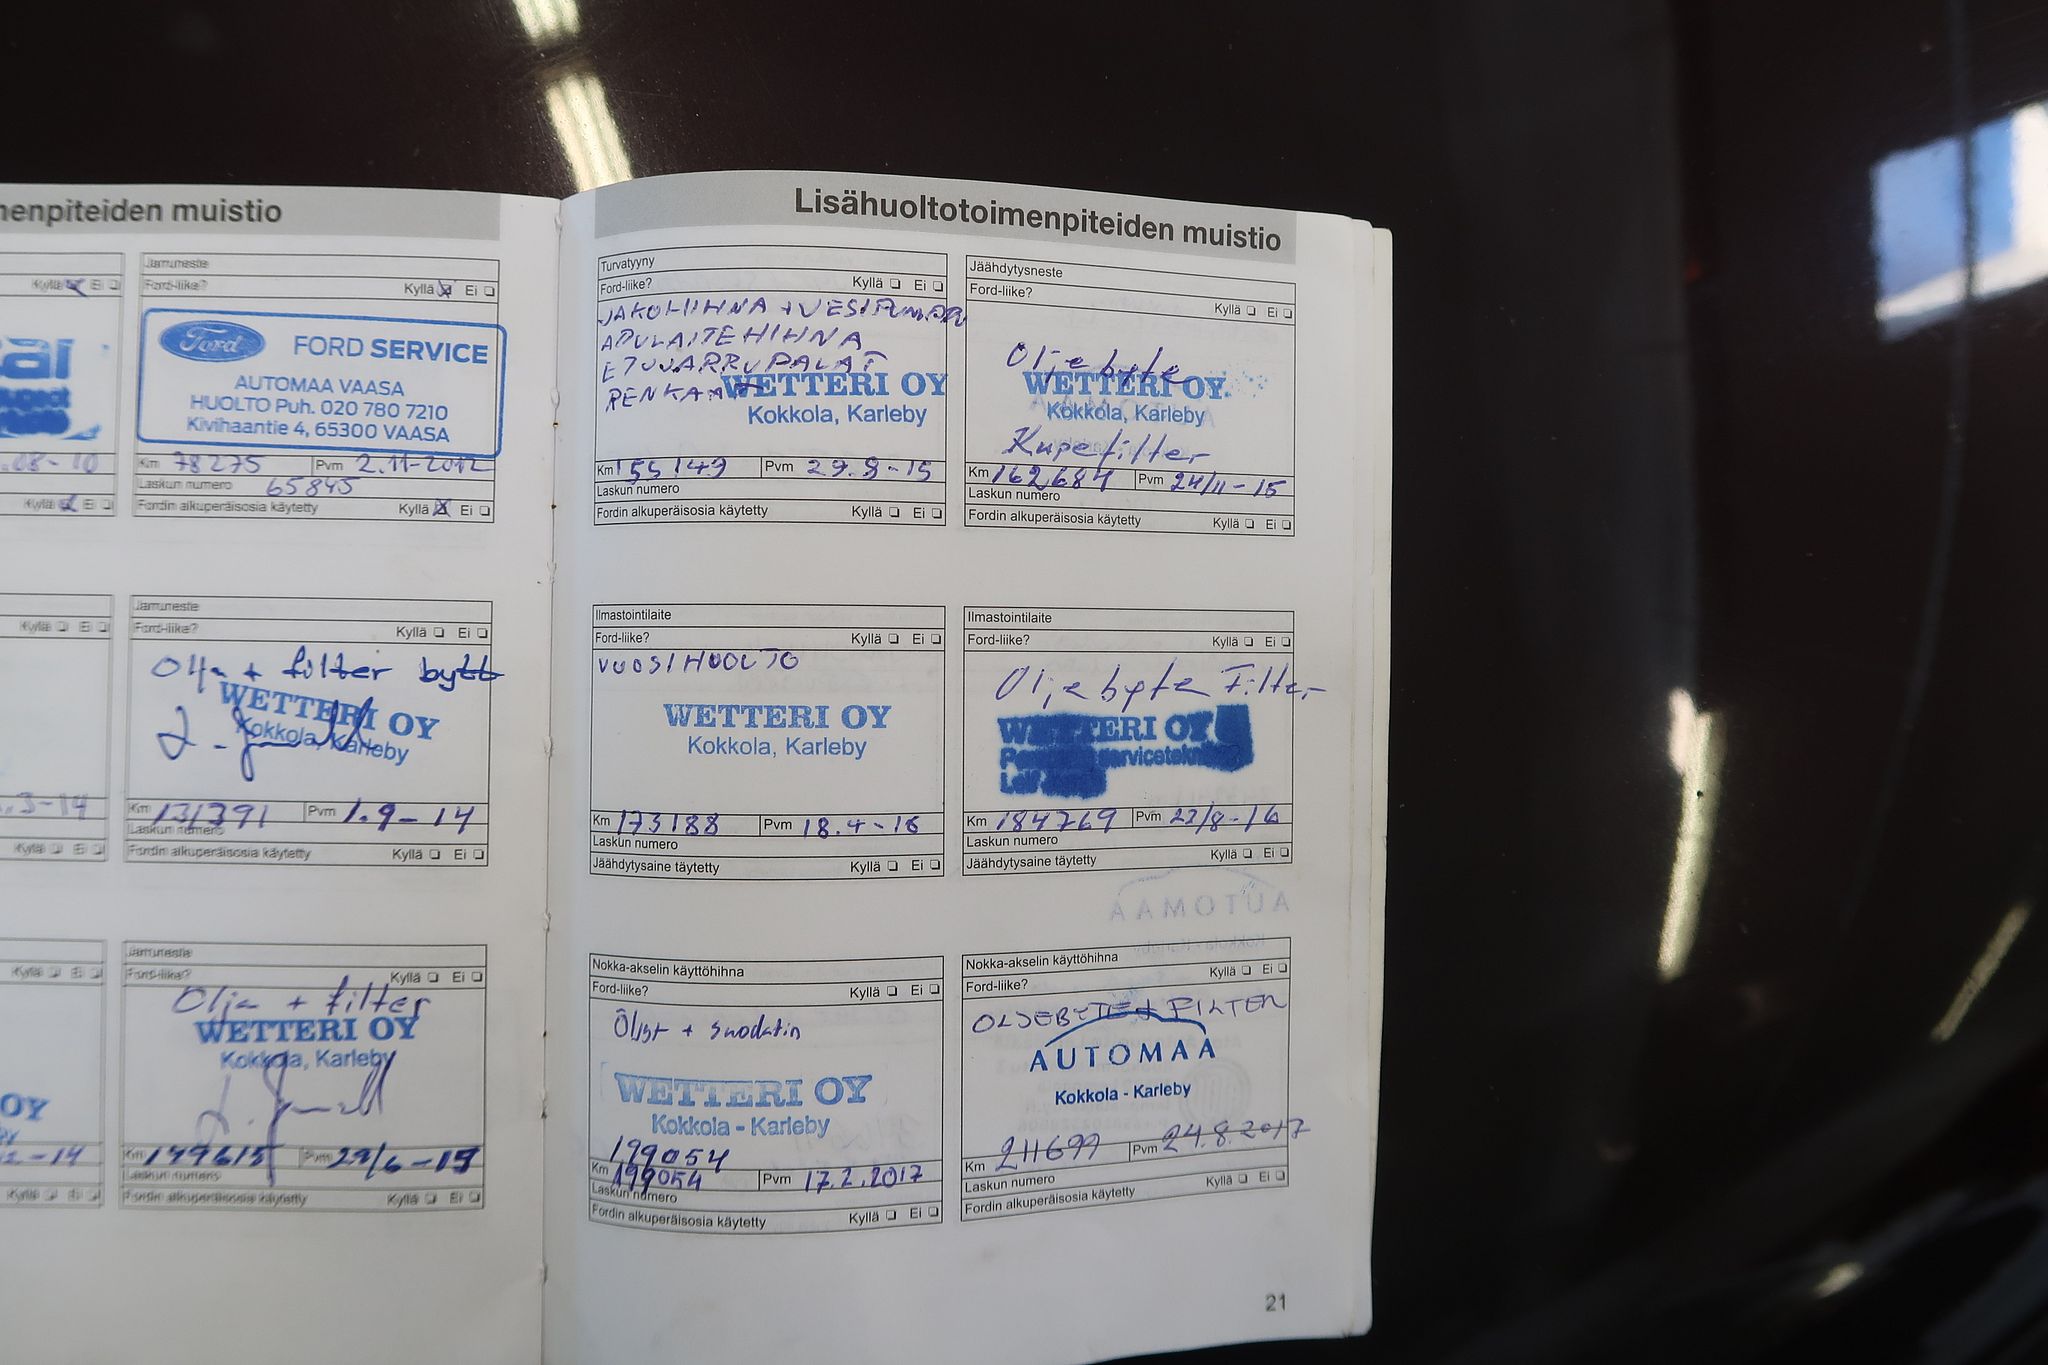 menpiteiden muistio
Kyllä Ei
08-10
Kyllä Ei
Jarruneste
Ford-liike? Kyllä Ei
Ford FORD SERVICE
AUTOMAA VAASA
HUOLTO Puh. 020 780 7210
Kivihaantie 4, 65300 VAASA
Km 78275 Pvm 2.11-2012
Laskun numero 65845
Fordin alkuperäisosia käytetty Kyllä Ei
Kyllä Ei
3-14
Kyllä Ei
Jarruneste
Ford-liike? Kyllä Ei
Olja + filter bytt
WETTERI OY
Kokkola, Karleby
Km 131391 Pvm 1.9-14
Laskun numero
Fordin alkuperäisosia käytetty Kyllä Ei
Kyllä Ei
OY
12-14
Kyllä Ei
Jarruneste
Ford-liike? Kyllä Ei
Olja + filter
WETTERI OY
Kokkola, Karleby
Km 149615 Pvm 29/6-15
Laskun numero
Fordin alkuperäisosia käytetty Kyllä Ei
Lisähuoltotoimenpiteiden muistio
Turvatyyny
Ford-liike? Kyllä Ei
JAKOHIHNA + VESIPUMPPU
APULAITEHIHNA
ETUJARRUPALAT
RENKAAT
WETTERI OY
Kokkola, Karleby
Km 155149 Pvm 29.9-15
Laskun numero
Fordin alkuperäisosia käytetty Kyllä Ei
Jäähdytysneste
Ford-liike?
Kyllä Ei
Oljebyte
WETTERI OY
Kokkola, Karleby
Kupefilter
Km 162684 Pvm 24/11-15
Laskun numero
Fordin alkuperäisosia käytetty Kyllä Ei
Ilmastointilaite
Ford-liike? Kyllä Ei
VUOSIHUOLTO
WETTERI OY
Kokkola, Karleby
Km 173188 Pvm 18.4-16
Laskun numero
Jäähdytysaine täytetty Kyllä Ei
Ilmastointilaite
Ford-liike? Kyllä Ei
Oljebyte Filter
WETTERI OY
Km 184769 Pvm 22/8-16
Laskun numero
Jäähdytysaine täytetty Kyllä Ei
AUTOMAA
Nokka-akselin käyttöhihna
Ford-liike? Kyllä Ei
Öljyt + suodatin
WETTERI OY
Kokkola - Karleby
199054
Km 199054 Pvm 17.2.2017
Laskun numero
Fordin alkuperäisosia käytetty Kyllä Ei
Nokka-akselin käyttöhihna
Ford-liike? Kyllä Ei
OLJEBYTE + FILTER
AUTOMAA
Kokkola - Karleby
Km 211699 Pvm 24.8.2017
Laskun numero
Fordin alkuperäisosia käytetty Kyllä Ei
21